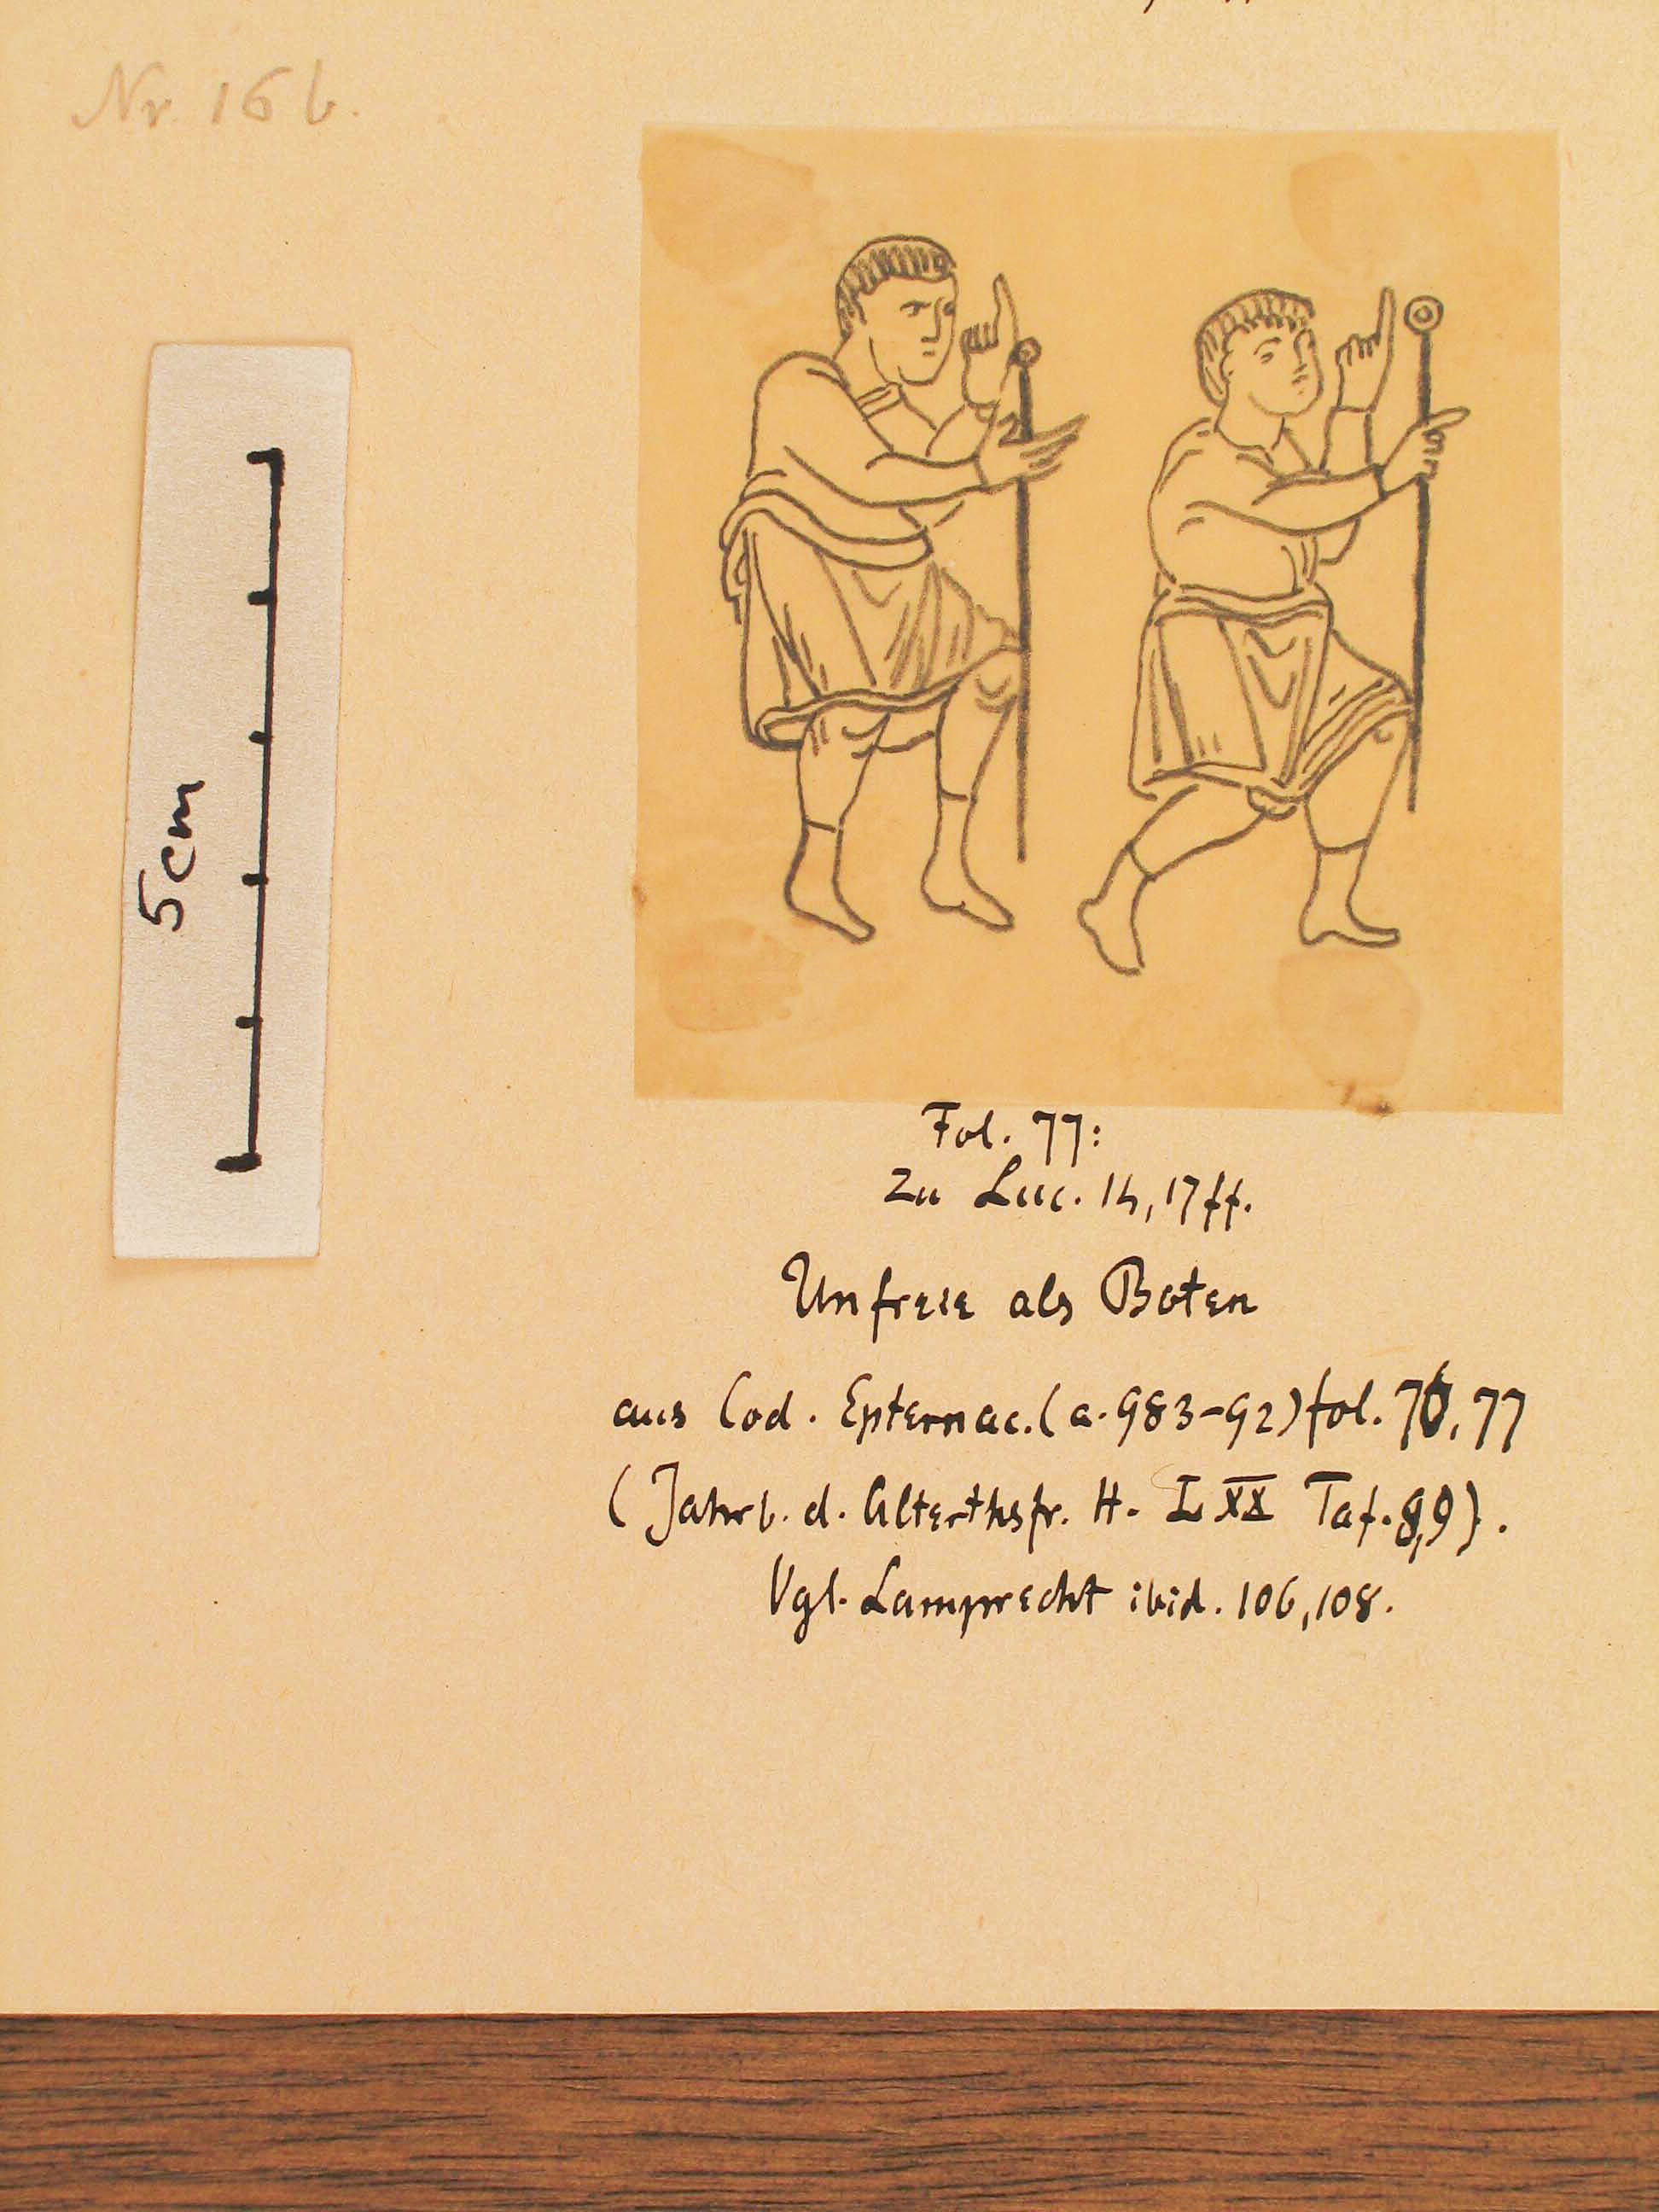 Nr. 16 b.
5cm
Fol. 77:
Zu Luc. 14, 17 ff.
Unfreie als Boten
aus Cod. Epternac. (a. 983-92) fol. 76, 77
(Jahrb. d. Alterthsfr. H. LXX Taf. 8, 9).
Vgl. Lamprecht ibid. 106, 108.